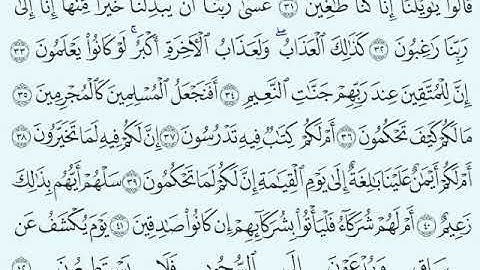 قَالُوا۟ يَٰوَيْلَنَآ إِنَّا كُنَّا طَٰغِينَ ٣١ عَسَىٰ رَبُّنَآ أَن يُبْدِلَنَا خَيْرًا مِّنْهَآ إِنَّآ إِلَىٰ
رَبِّنَا رَٰغِبُونَ ٣٢ كَذَٰلِكَ ٱلْعَذَابُ ۖ وَلَعَذَابُ ٱلْءَاخِرَةِ أَكْبَرُ ۚ لَوْ كَانُوا۟ يَعْلَمُونَ ٣٣
إِنَّ لِلْمُتَّقِينَ عِندَ رَبِّهِمْ جَنَّٰتِ ٱلنَّعِيمِ ٣٤ أَفَنَجْعَلُ ٱلْمُسْلِمِينَ كَٱلْمُجْرِمِينَ ٣٥
مَا لَكُمْ كَيْفَ تَحْكُمُونَ ٣٦ أَمْ لَكُمْ كِتَٰبٌ فِيهِ تَدْرُسُونَ ٣٧ إِنَّ لَكُمْ فِيهِ لَمَا تَخَيَّرُونَ ٣٨
أَمْ لَكُمْ أَيْمَٰنٌ عَلَيْنَا بَٰلِغَةٌ إِلَىٰ يَوْمِ ٱلْقِيَٰمَةِ إِنَّ لَكُمْ لَمَا تَحْكُمُونَ ٣٩ سَلْهُمْ أَيُّهُم بِذَٰلِكَ
زَعِيمٌ ٤٠ أَمْ لَهُمْ شُرَكَآءُ فَلْيَأْتُوا۟ بِشُرَكَآئِهِمْ إِن كَانُوا۟ صَٰدِقِينَ ٤١ يَوْمَ يُكْشَفُ عَن
سَاقٍ وَيُدْعَوْنَ إِلَى ٱلسُّجُودِ فَلَا يَسْتَطِيعُونَ ٤٢